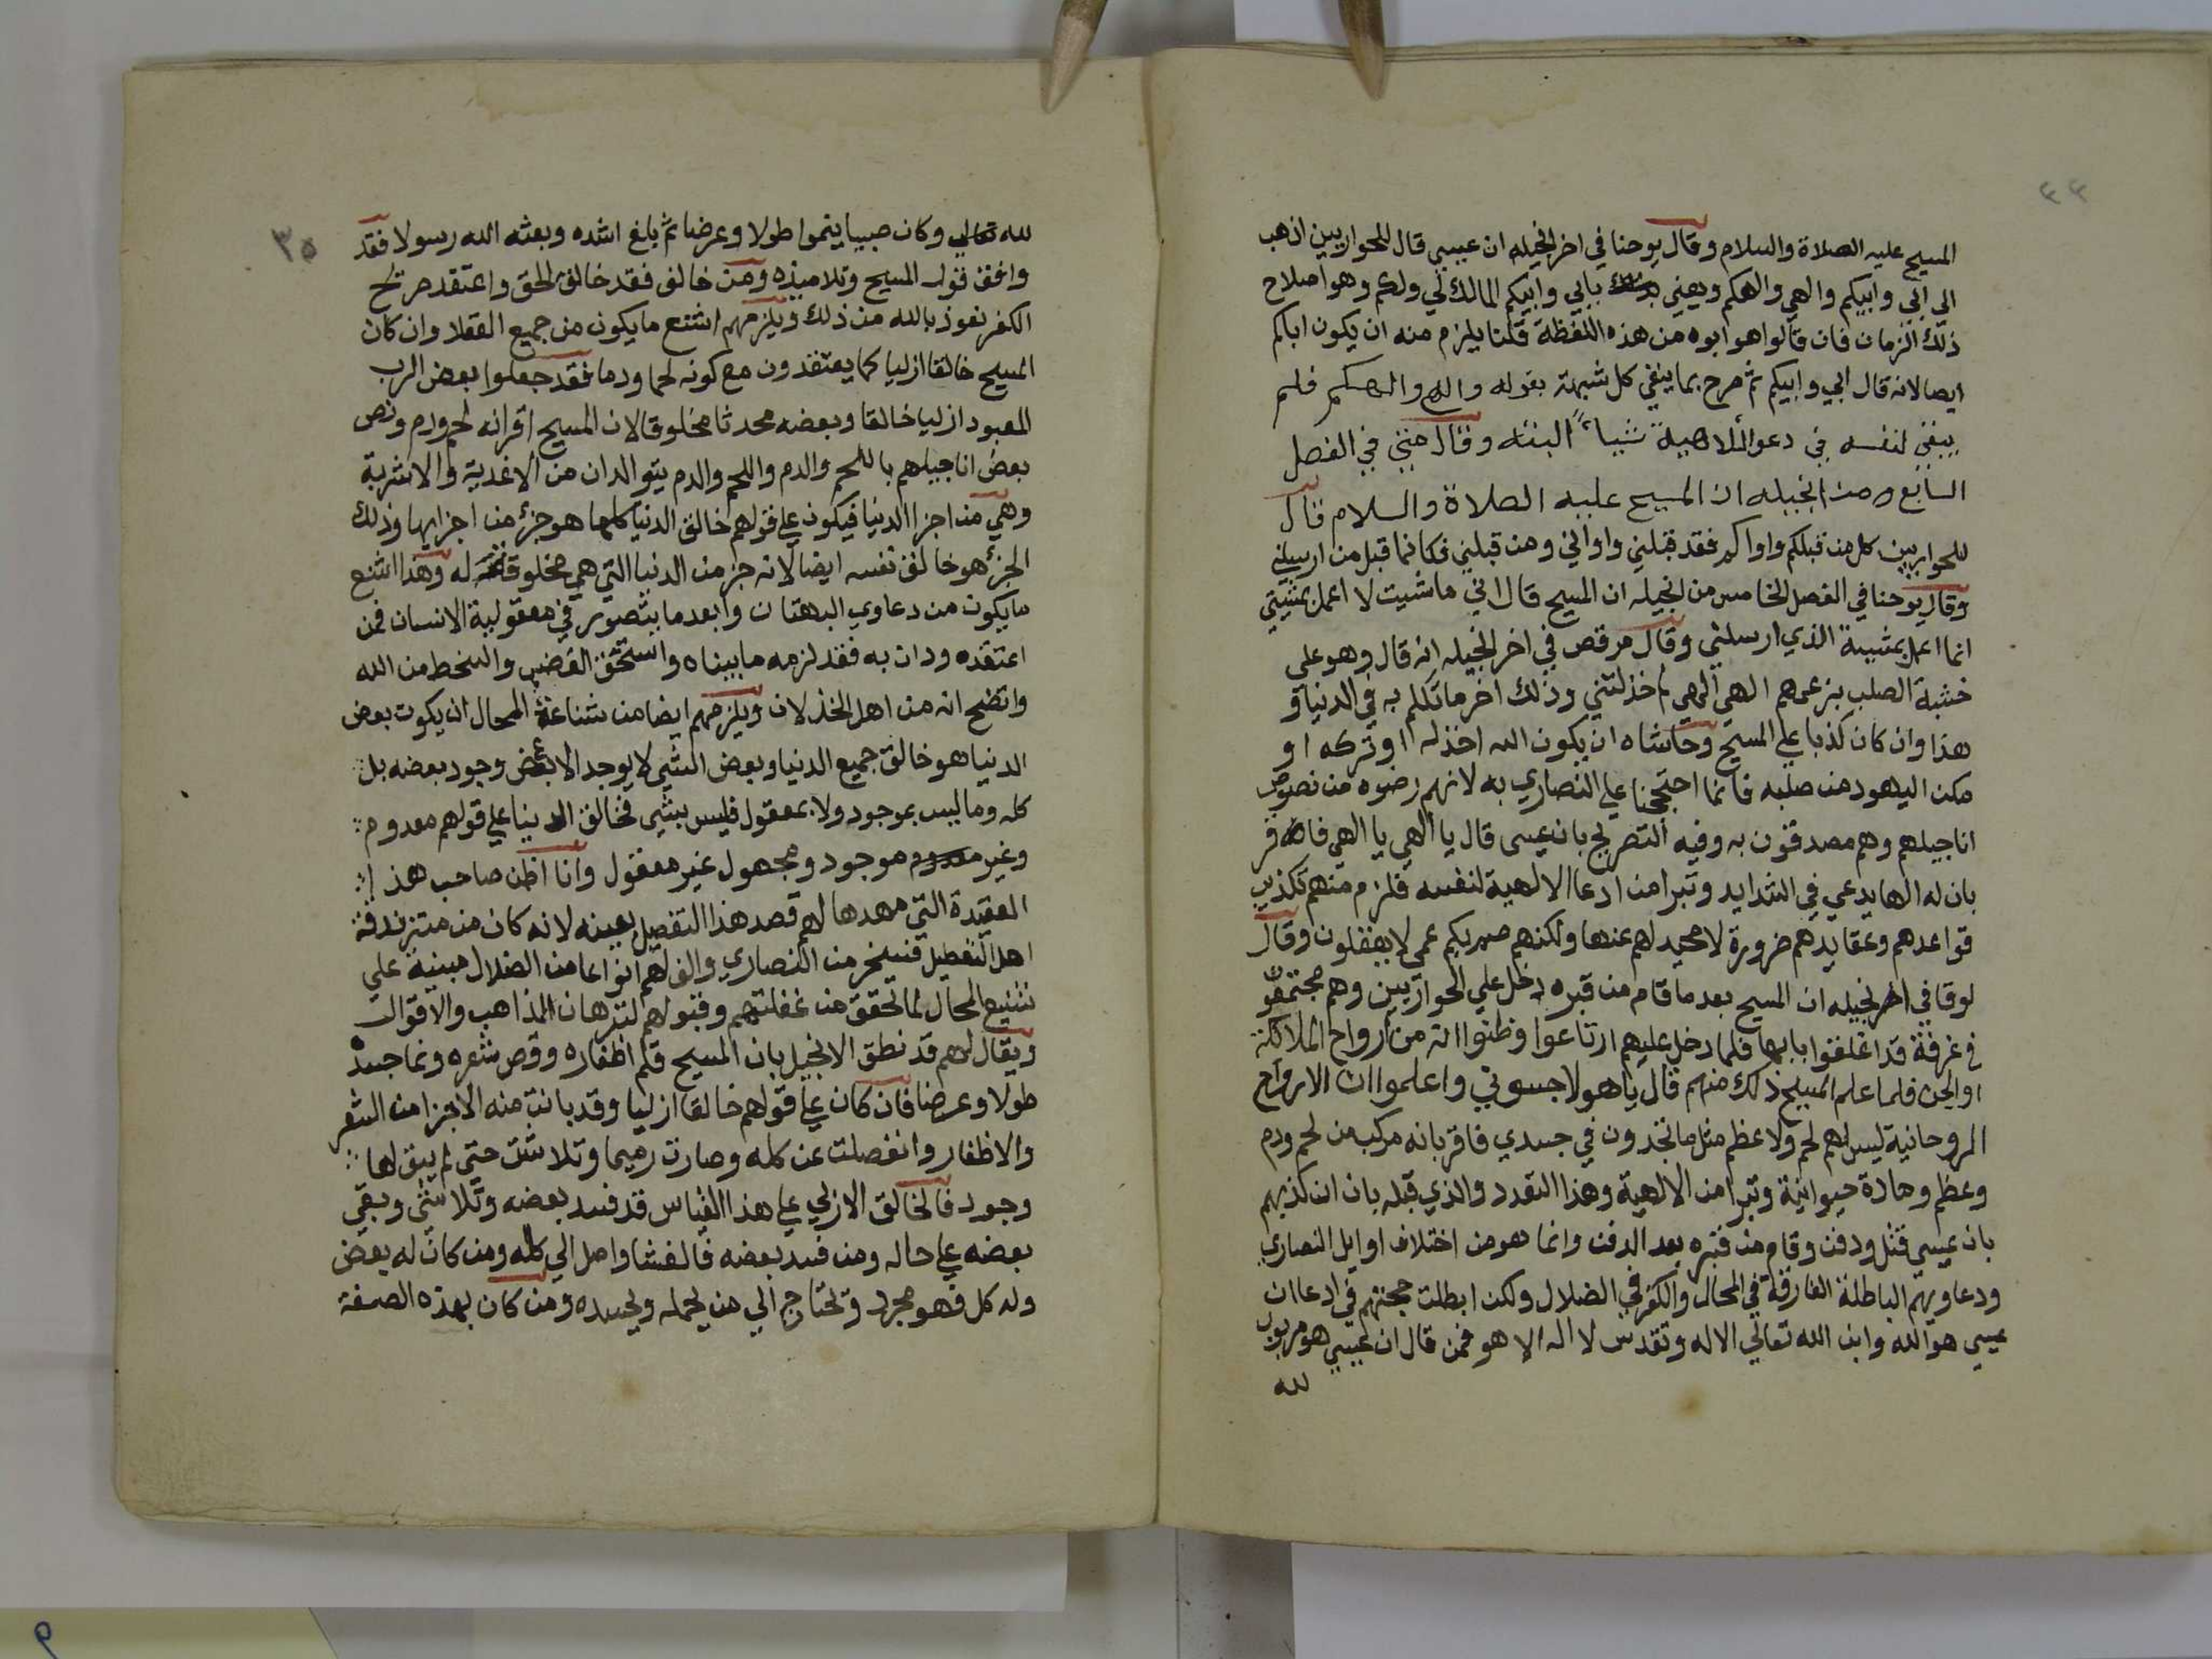 ٤٤
المسيح عليه الصلاة والسلام وقال يوحنا في اخر انجيله ان عيسي قال للحواريين اذهب
الي ابي وابيكم والهي والهكم ويعني بابي وابيكم المالك لي ولكم وهو اصلاح
ذلك الزمان فان قالوا هو ابوه من هذه اللفظة قلنا يلزم منه ان يكون اباكم
ايضا لانه قال ابي وابيكم ثم صرح بما ينفي كل شبهة بقوله والهي والهكم فلم
يبقي لنفسه في دعوا الالاهية شياءً البتته وقال متي في الفصل
السابع من انجيله ان المسيح عليه الصلاة والسلام قال
للحواريين كل من قبلكم واواكم فقد قبلني واواني ومن قبلني فكانما قبل من ارسلني
وقال يوحنا في الفصل الخامس من انجيله ان المسيح قال اني ما شيت لا اعمل بمشيتي
انما اعمل بمشيية الذي ارسلني وقال مرقص في اخر انجيله انه قال وهو علي
خشبة الصلب بزعمهم الهي الهي لم خذلتني وذلك اخر ما تكلم به في الدنيا و
هذا وان كان كذبا علي المسيح وحاشاه ان يكون الله اخذله او تركه او
مكن اليهود من صلبه فانما احتججنا علي النصاري به لانهم رضوه من نصوص
اناجيلهم وهم مصدقون به وفيه التصريح بان عيسى قال يا الهي يا الهي فاقر
بان له الها يدعي في الشدايد وتبرا من ادعا الالهية لنفسه فلزم منهم تكذيب
قواعدهم وعقايدهم ضرورة لا محيد لهم عنها ولكنهم صم بكم عمي لا يعقلون وقال
لوقا في اخر انجيله ان المسيح بعد ما قام من قبره دخل علي الحواريين وهم مجتمعون
في غرفة قد اغلقوا بابها فلما دخل عليهم ارتاعوا وظنوا انه من ارواح الملائكة
او الجن فلما علم المسيح ذلك منهم قال يا هولا جسوني واعلموا ان الارواح
الروحانية ليس لهم لحم ولا عظم مثل ما تجدون في جسدي فاقر بانه مركب من لحم ودم
وعظم ومادة حيوانية وتبرا من الالهية وهذا التعدد والذي قبله بان ان كذبهم
بان عيسي قتل ودفن وقام من قبره بعد الدفن وانما هو من اختلاف اوايل النصاري
ودعاويهم الباطلة الغارقة في المحال والكفر في الضلال ولكن ابطلت حجتهم في ادعا ان
عيسي هو الله وابن الله تعالي الاله وتقدس لا اله الا هو فمن قال ان عيسي هو مربوب
لله
٣٥
لله تعالي وكان صبيا ينموا طولا وعرضا ثم بلغ اشده وبعثه الله رسولا فقد
وافق قول المسيح وتلاميذه ومن خالف فقد خالف الحق واعتقد صريح
الكفر نعوذ بالله من ذلك ويلزمهم اشنع ما يكون من جميع العقلا وان كان
المسيح خالقا ازليا كما يعتقدون مع كونه لحما ودما فقد جعلوا بعض الرب
المعبود ازليا خالقا وبعضه محدثا مخلوقا لان المسيح اقر انه لحم ودم ونص
بعض اناجيلهم باللحم والدم واللحم والدم يتوالدان من الاغدية والاشربة
وهي من اجزا الدنيا فيكون علي قولهم خالق الدنيا كلها هو جزء من اجزايها وذلك
الجزء هو خالق نفسه ايضا لانه جز من الدنيا التي هي مخلوقة له وهذا اشنع
ما يكون من دعاوي البهتان وابعد ما يتصور في معقولية الانسان فمن
اعتقده ودان به فقد لزمه ما بيناه واستحق الغضب والسخط من الله
واتضح انه من اهل الخذلان ويلزمهم ايضا من شناعة المحال ان يكون بعض
الدنيا هو خالق جميع الدنيا وبعض الشي لا يوجد الا بعض وجود بعضه بل
كله وما ليس بموجود ولا بمعقول فليس بشي فخالق الدنيا علي قولهم معدوم
وغير موجود ومجهول غير معقول وانا اظن صاحب هذا
العقيدة التي مهدها لهم قصد هذا التفصيل بعينه لانه كان من متزندقة
اهل التعطيل فسخر من النصاري والف لهم انواعا من الضلال مبنية علي
تشنيع المحال لما تحقق من غفلتهم وقبولهم لترهات المذاهب والاقوال
ويقال لهم قد نطق الانجيل بان المسيح قلم اظفاره وقص شعره ونما جسده
طولا وعرضا فان كان علي قولهم خالقا ازليا وقد بانت منه الاجزا من الشعر
والاظفار وانفصلت عن كله وصارت رميما وتلاشت حتي لم يبق لها
وجود فالخالق الازلي علي هذا القياس قد فسد بعضه وتلاشى وبقي
بعضه علي حاله ومن فسد بعضه فالفشا واصل الي كله ومن كان له بعض
وله كل فهو مجرد وتحتاج الي من يحمله ويجسده ومن كان بهذه الصفة